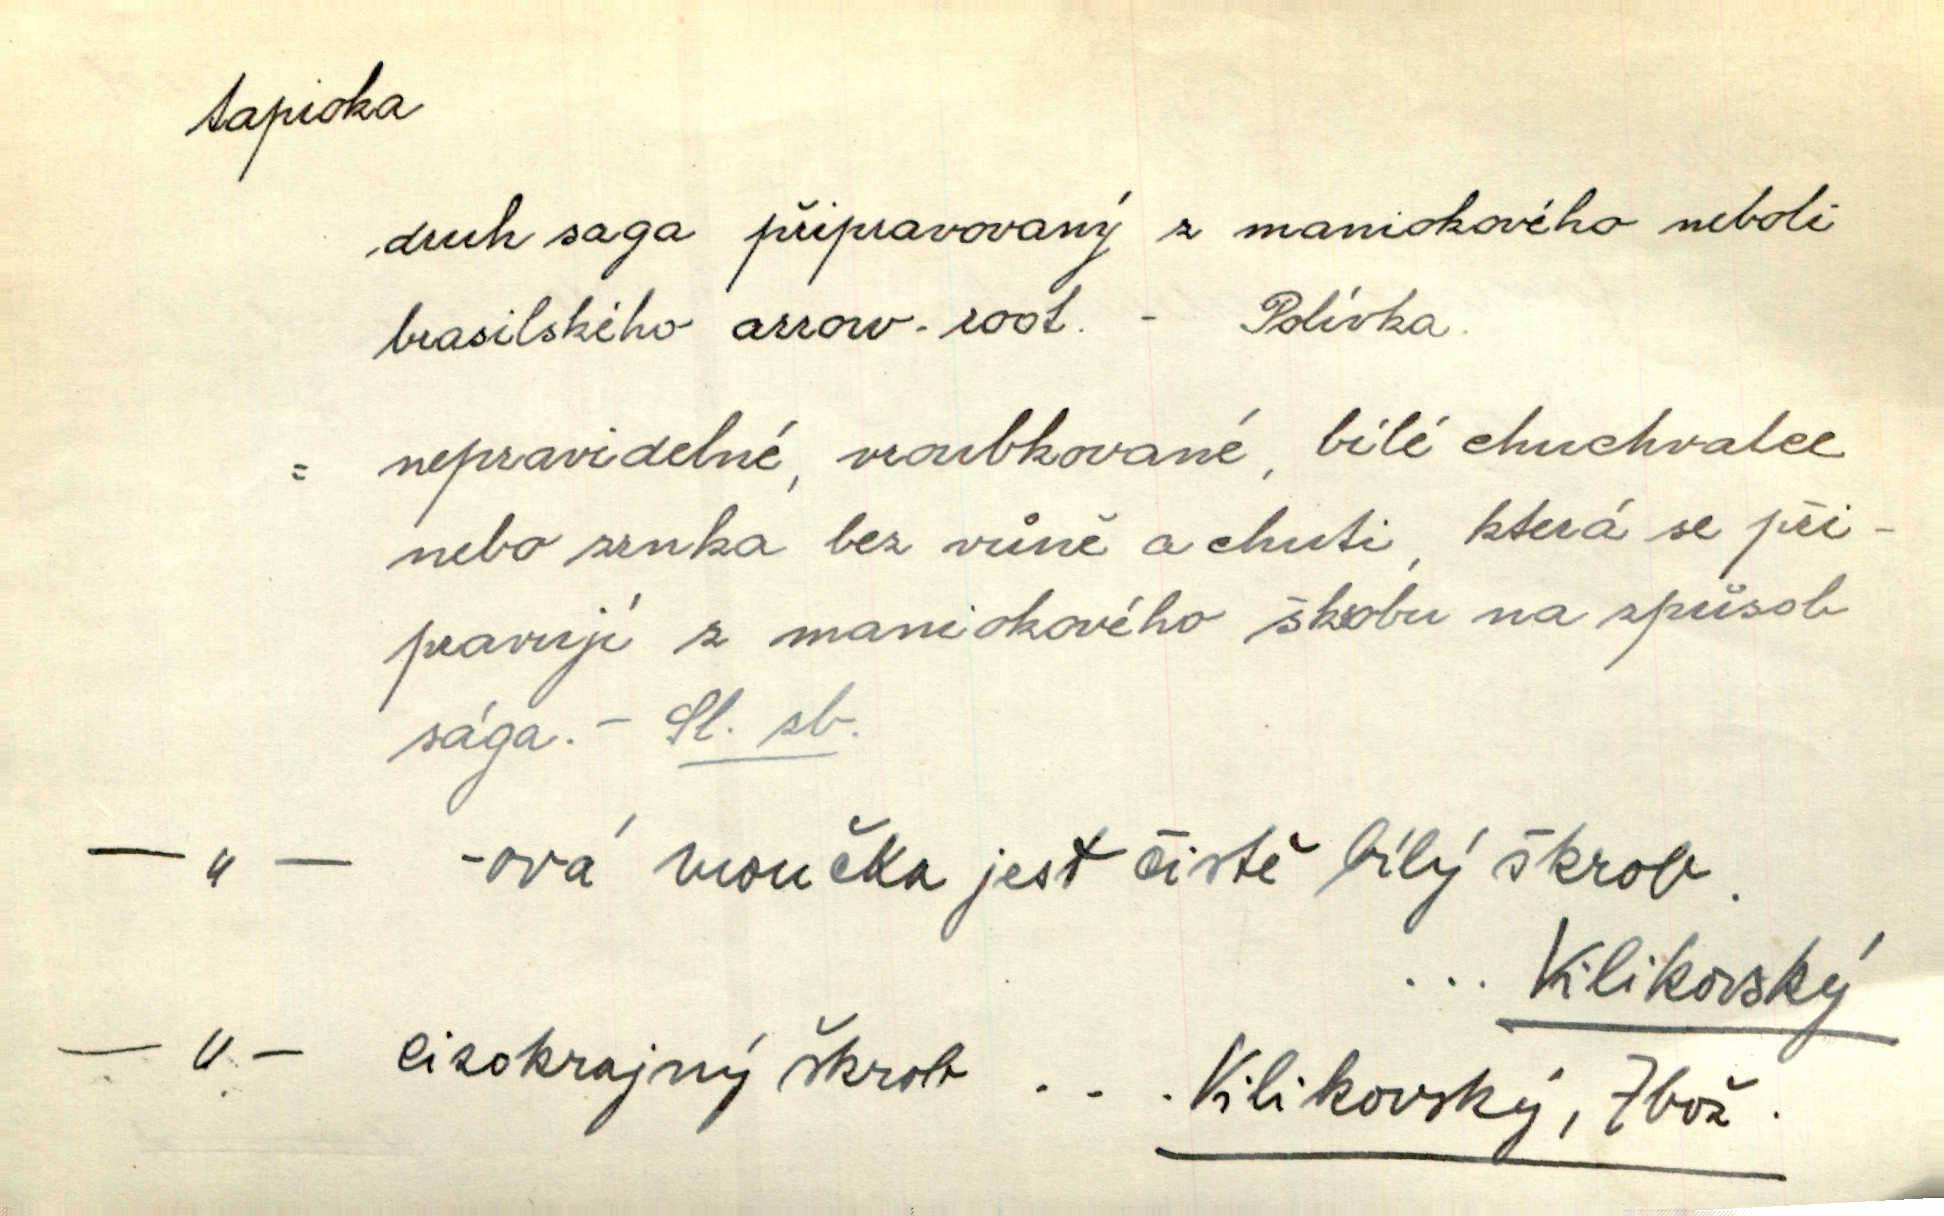 tapioka
druh saga připravovaný z maniokového neboli
brasilského arrow-root. - Polívka.
= nepravidelné, vroubkované, bílé chuchvalce
nebo zrnka bez vůně a chuti, která se při-
pravují z maniokového škrobu na způsob
sága. - Sl. zb.
— " — -ová moučka jest čistě bílý škrob.
... Vilikovský
— " — cizokrajný škrob ... Vilikovský, Zbož.